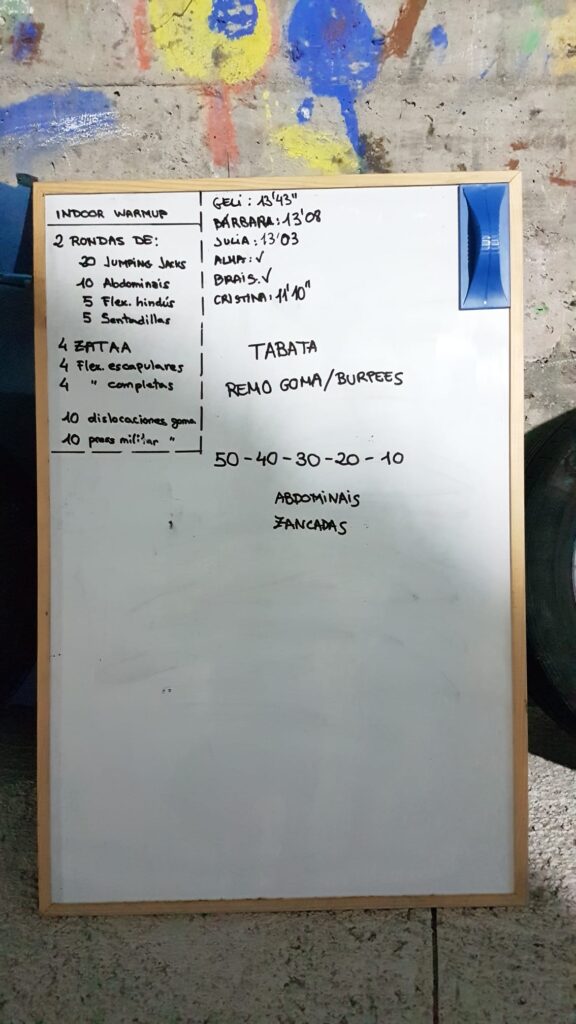 INDOOR WARMUP
2 RONDAS DE:
20 JUMPING JACKS
10 Abdominais
5 Flex. hindús
5 Sentadillas
4 ZATAA
4 Flex. escapulares
4 " completas
10 dislocaciones goma
10 press militar "
GELI: 13'43"
BÁRBARA: 13'08
JULIA: 13'03
ALMA: ✓
BRAIS: ✓
CRISTINA: 11'10"
TABATA
REMO GOMA/BURPEES
50-40-30-20-10
ABDOMINAIS
ZANCADAS